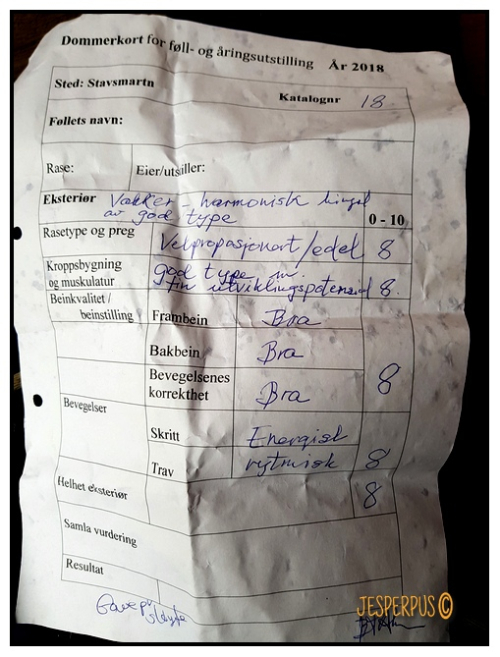 Dommerkort for føll- og åringsutstilling År 2018
Sted: Stavsmartn
Katalognr 18.
Føllets navn:
Rase: Eier/utsiller:
Eksteriør Vakker - harmonisk hingst
av god type 0 - 10
Rasetype og preg Velproposjonert/edel 8
Kroppsbygning god type m.
og muskulatur fin utviklingspotensial 8.
Beinkvalitet/
beinstilling Frambein Bra
Bakbein Bra
Bevegelsenes
korrekthet Bra 8
Bevegelser
Skritt Energisk
Trav rytmisk 8
Helhet eksteriør 8
Samla vurdering
Resultat
JESPERPUS©